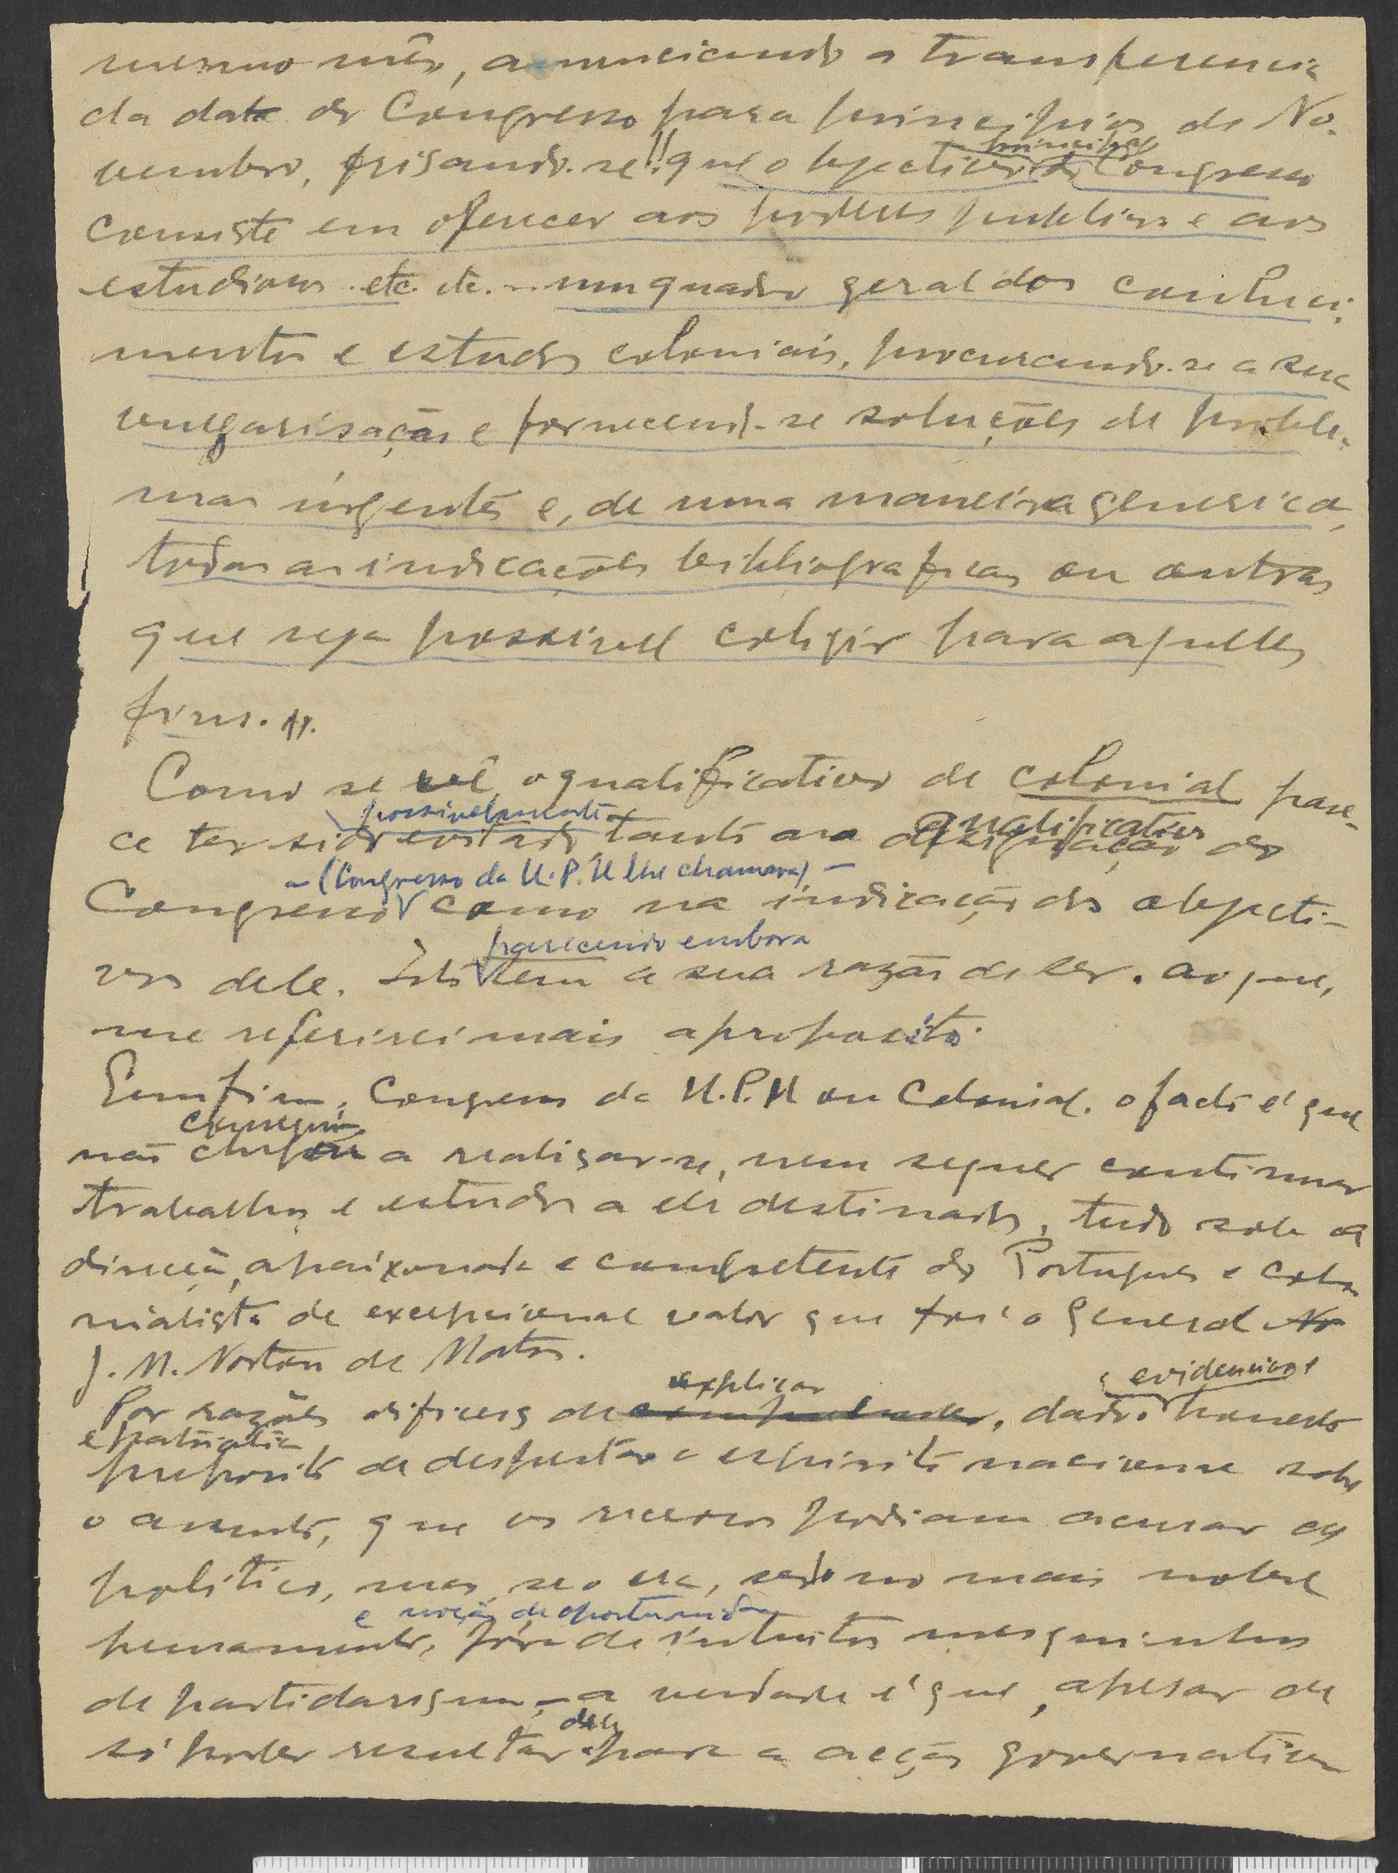 mesmo mês, anunciando a transferencia
da data do Congresso para principios de No-
vembro, frisando-se "que o objectivo principal do Congresso
consiste em oferecer aos poderes publicos e aos
estudiosos etc. etc. ... um quadro geral dos conheci-
mentos e estudos coloniais, procurando-se a sua
vulgarisação e fornecendo-se soluções de proble-
mas urgentes e, de uma maneira generica,
todas as indicações bibliograficas ou outras
que seja possivel coligir para aquelles
fins."
Como se vê, o qualificativo de colonial pare-
possivelmente
ce ter sido evitado, tanto na qualificativo do
– (Congresso da U.P.U lhe chamara) –
Congresso como na indicação dos objecti-
parecendo embora
vos dele. Isto tem a sua razão de ser. ao que,
me referirei mais a proposito.
Emfim, Congresso da U.P.U ou Colonial. o facto é que
conseguiu
não chegou a realisar-se, nem sequer continuar
trabalhos e estudos a ele destinados, tudo sob a
direcção, apaixonada e competente do Português e colo-
nialista de excepcional valor que foi o General
J. M. Norton de Matos.
explicar evidenciar
Por razões dificeis de , dado o honesto
e patriotico
proposito de despertar o espirito nacional sobre
o assunto, que os receosos podiam acusar de
politico, mas, se o era, sendo no mais nobre
e noção de oportunidade
pensamento, fóra de intuitos mesquinhos
de partidarismo, – a verdade é que, apesar de
dele
só poder resultar para a acção governativa